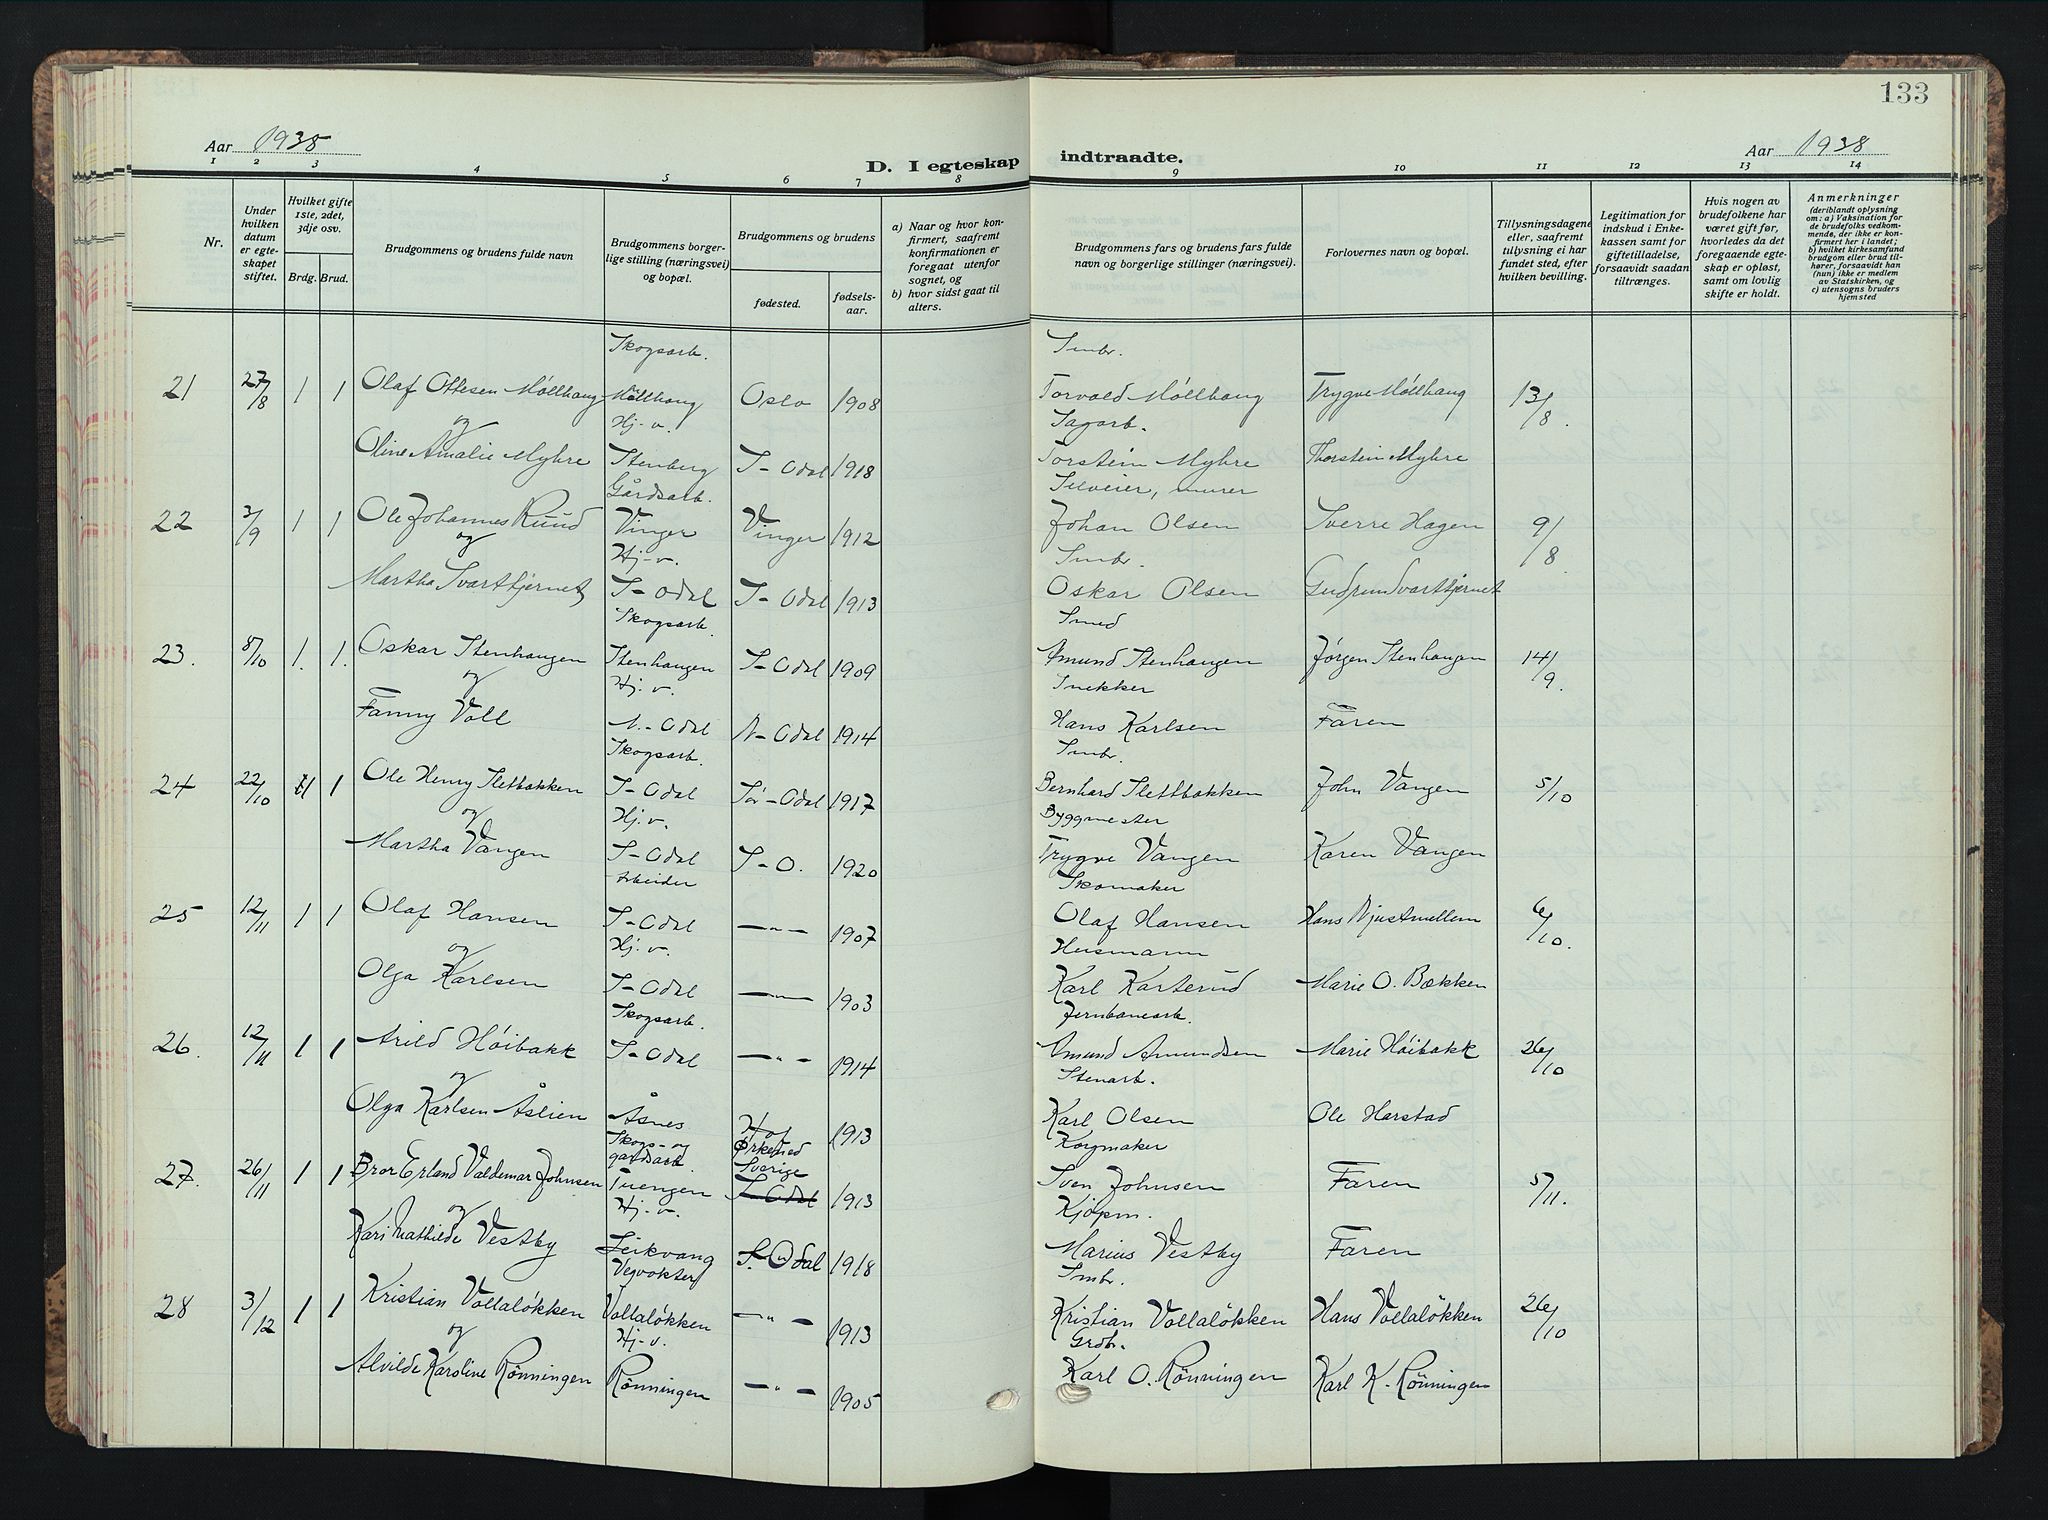 133
Aar 1938
Aar 1938
D. I egteskap indtraadte.
1 2 3 4 5 6 7 8 9 10 11 12 13 14
Nr.
Under hvilken datum er egteskapet stiftet.
Hvilket gifte 1ste, 2det, 3dje osv.
Brdg. Brud.
Brudgommens og brudens fulde navn
Brudgommens borgerlige stilling (næringsvei) og bopæl.
Brudgommens og brudens
fødested.
fødselsaar.
a) Naar og hvor konfirmert, saafremt konfirmationen er foregaat utenfor sognet, og
b) hvor sidst gaat til alters.
Brudgommens fars og brudens fars fulde navn og borgerlige stillinger (næringsvei).
Forlovernes navn og bopæl.
Tillysningsdagene eller, saafremt tillysning ei har fundet sted, efter hvilken bevilling.
Legitimation for indskud i Enkekassen samt for giftetilladelse, forsaavidt saadan tiltrænges.
Hvis nogen av brudefolkene har været gift før, hvorledes da det foregaaende egteskap er opløst, samt om lovlig skifte er holdt.
Anmerkninger
(deriblandt oplysning om: a) Vaksination for de brudefolks vedkommende, der ikke er konfirmert her i landet; b) hvilket kirkesamfund brudgom eller brud tilhører, forsaavidt han (hun) ikke er medlem av Statskirken, og c) utensogns bruders hjemsted
Skogsarb. Smbr.
21 27/8 1 1 Olaf Ottesen Møllhaug Møllhaug Oslo 1908 Torvald Møllhaug Trygve Møllhaug 13/8.
og Hj-v. Sagarb.
Oline Amalie Myhre Stenberg S-Odal 1918 Torstein Myhre Thorstein Myhre
Gårdsarb. Selveier, murer
22 3/9 1 1 Ole Johannes Ruud Vinger Vinger 1912 Johan Olsen Sverre Hagen 9/8.
og Hj-v. Smbr.
Martha Svarttjernet S-Odal S-Odal 1913 Oskar Olsen Gudrun Svarttjernet
Skogsarb. Smed
23. 8/10 1. 1. Oskar Stenhaugen Stenhaugen S-Odal 1909 Amund Stenhaugen Jørgen Stenhaugen 14/9.
og Hj.v. Snekker
Fanny Voll N.-Odal N-Odal 1914 Hans Karlsen Faren
Skogsarb. Smbr.
24 22/10 1 1 Ole Henry Slettbakken S-Odal Sør-Odal 1917 Bernhard Slettbakken John Vangen 5/10
og Hj.v. Byggmester
Martha Vangen S-Odal S-O. 1920 Trygve Vangen Karen Vangen
Arbeider Skomaker
25 12/11 1 1 Olaf Hansen S-Odal —"— 1907 Olaf Hansen Hans 6/10.
og Hj.v. Husmann
Olga Karlsen S-Odal —"— 1903 Karl Karterud Marie O. Bækken
Skogsarb. Jernbanearb.
26. 12/11 1 1 Arild Høibakk S-Odal —"— 1914 Amund Amundsen Marie Høibakk 26/10
og Stenarb.
Olga Karlsen Åslien Åsnes Hof 1913 Karl Olsen Ole Harstad
Skogs- og gardsarb. Ørkened Sverige Korgmaker
27. 26/11 1 1 Bror Erland Valdemar Johnsen Tuengen S-Odal 1913 Sven Johnsen Faren 5/11.
og Hj-v. Kjøpm.
Kari Mathilde Vestby Leikvang S. Odal 1918 Marius Vestby Faren
Veivokter Smbr.
28 3/12 1 1 Kristian Vollaløkken Vollaløkken —"— 1913 Kristian Vollaløkken Hans Vollaløkken 26/10
og Hj-v. Grdbr.
Alvilde Karoline Rønningen Rønningen —"— 1905 Karl O. Rønningen Karl K. Rønningen